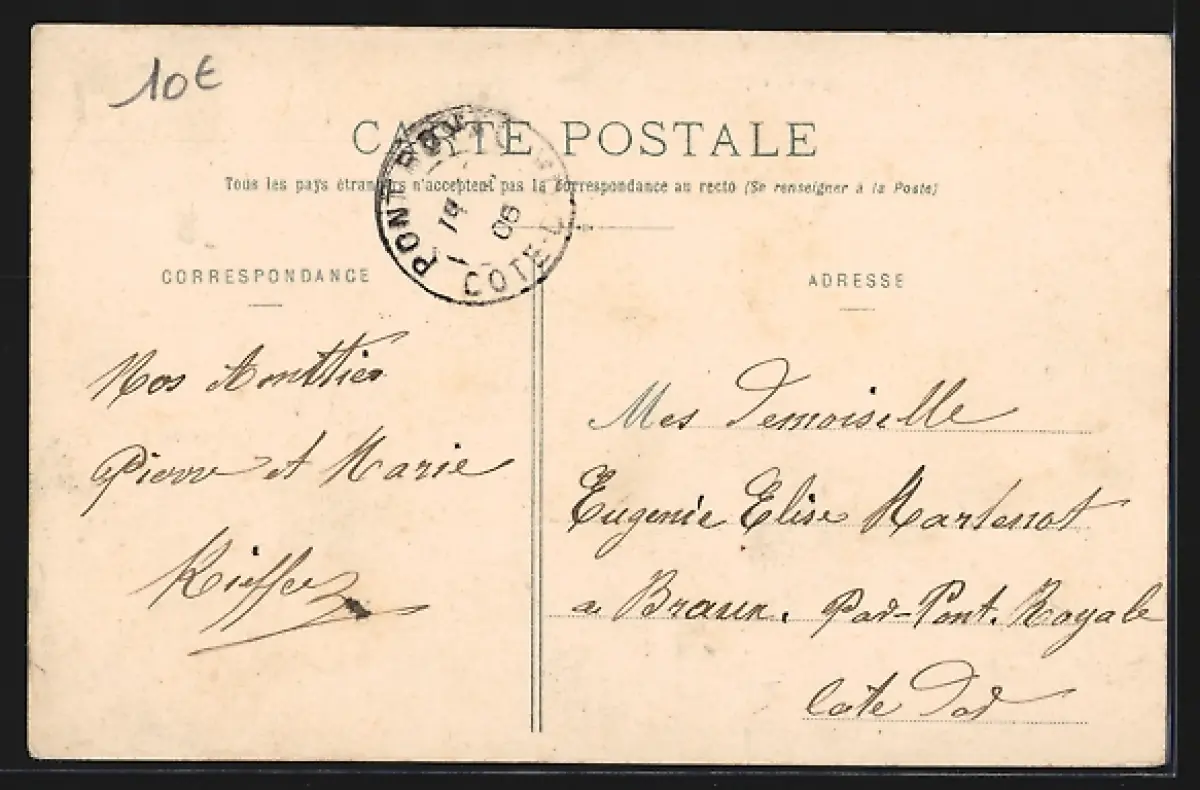 10€
CARTE POSTALE
Tous les pays étrangers n'acceptent pas la correspondance au recto (Se renseigner à la Poste)
PONT ROY
19
08
COTE-D
CORRESPONDANCE
ADRESSE
Nos Amittier
Pierre et Marie
Kieffer
Mes Demoiselle
Eugenie Elise Martenot
a Braux. Par-Pont. Royale
Côte Dor